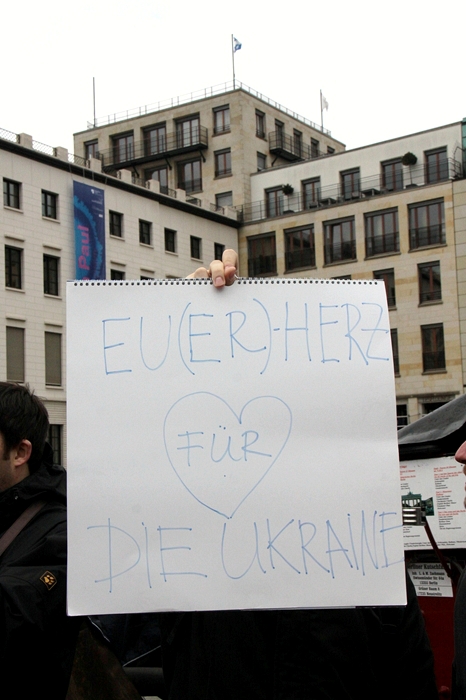 EU(ER)-HERZ
FÜR
DIE UKRAINE
Paul